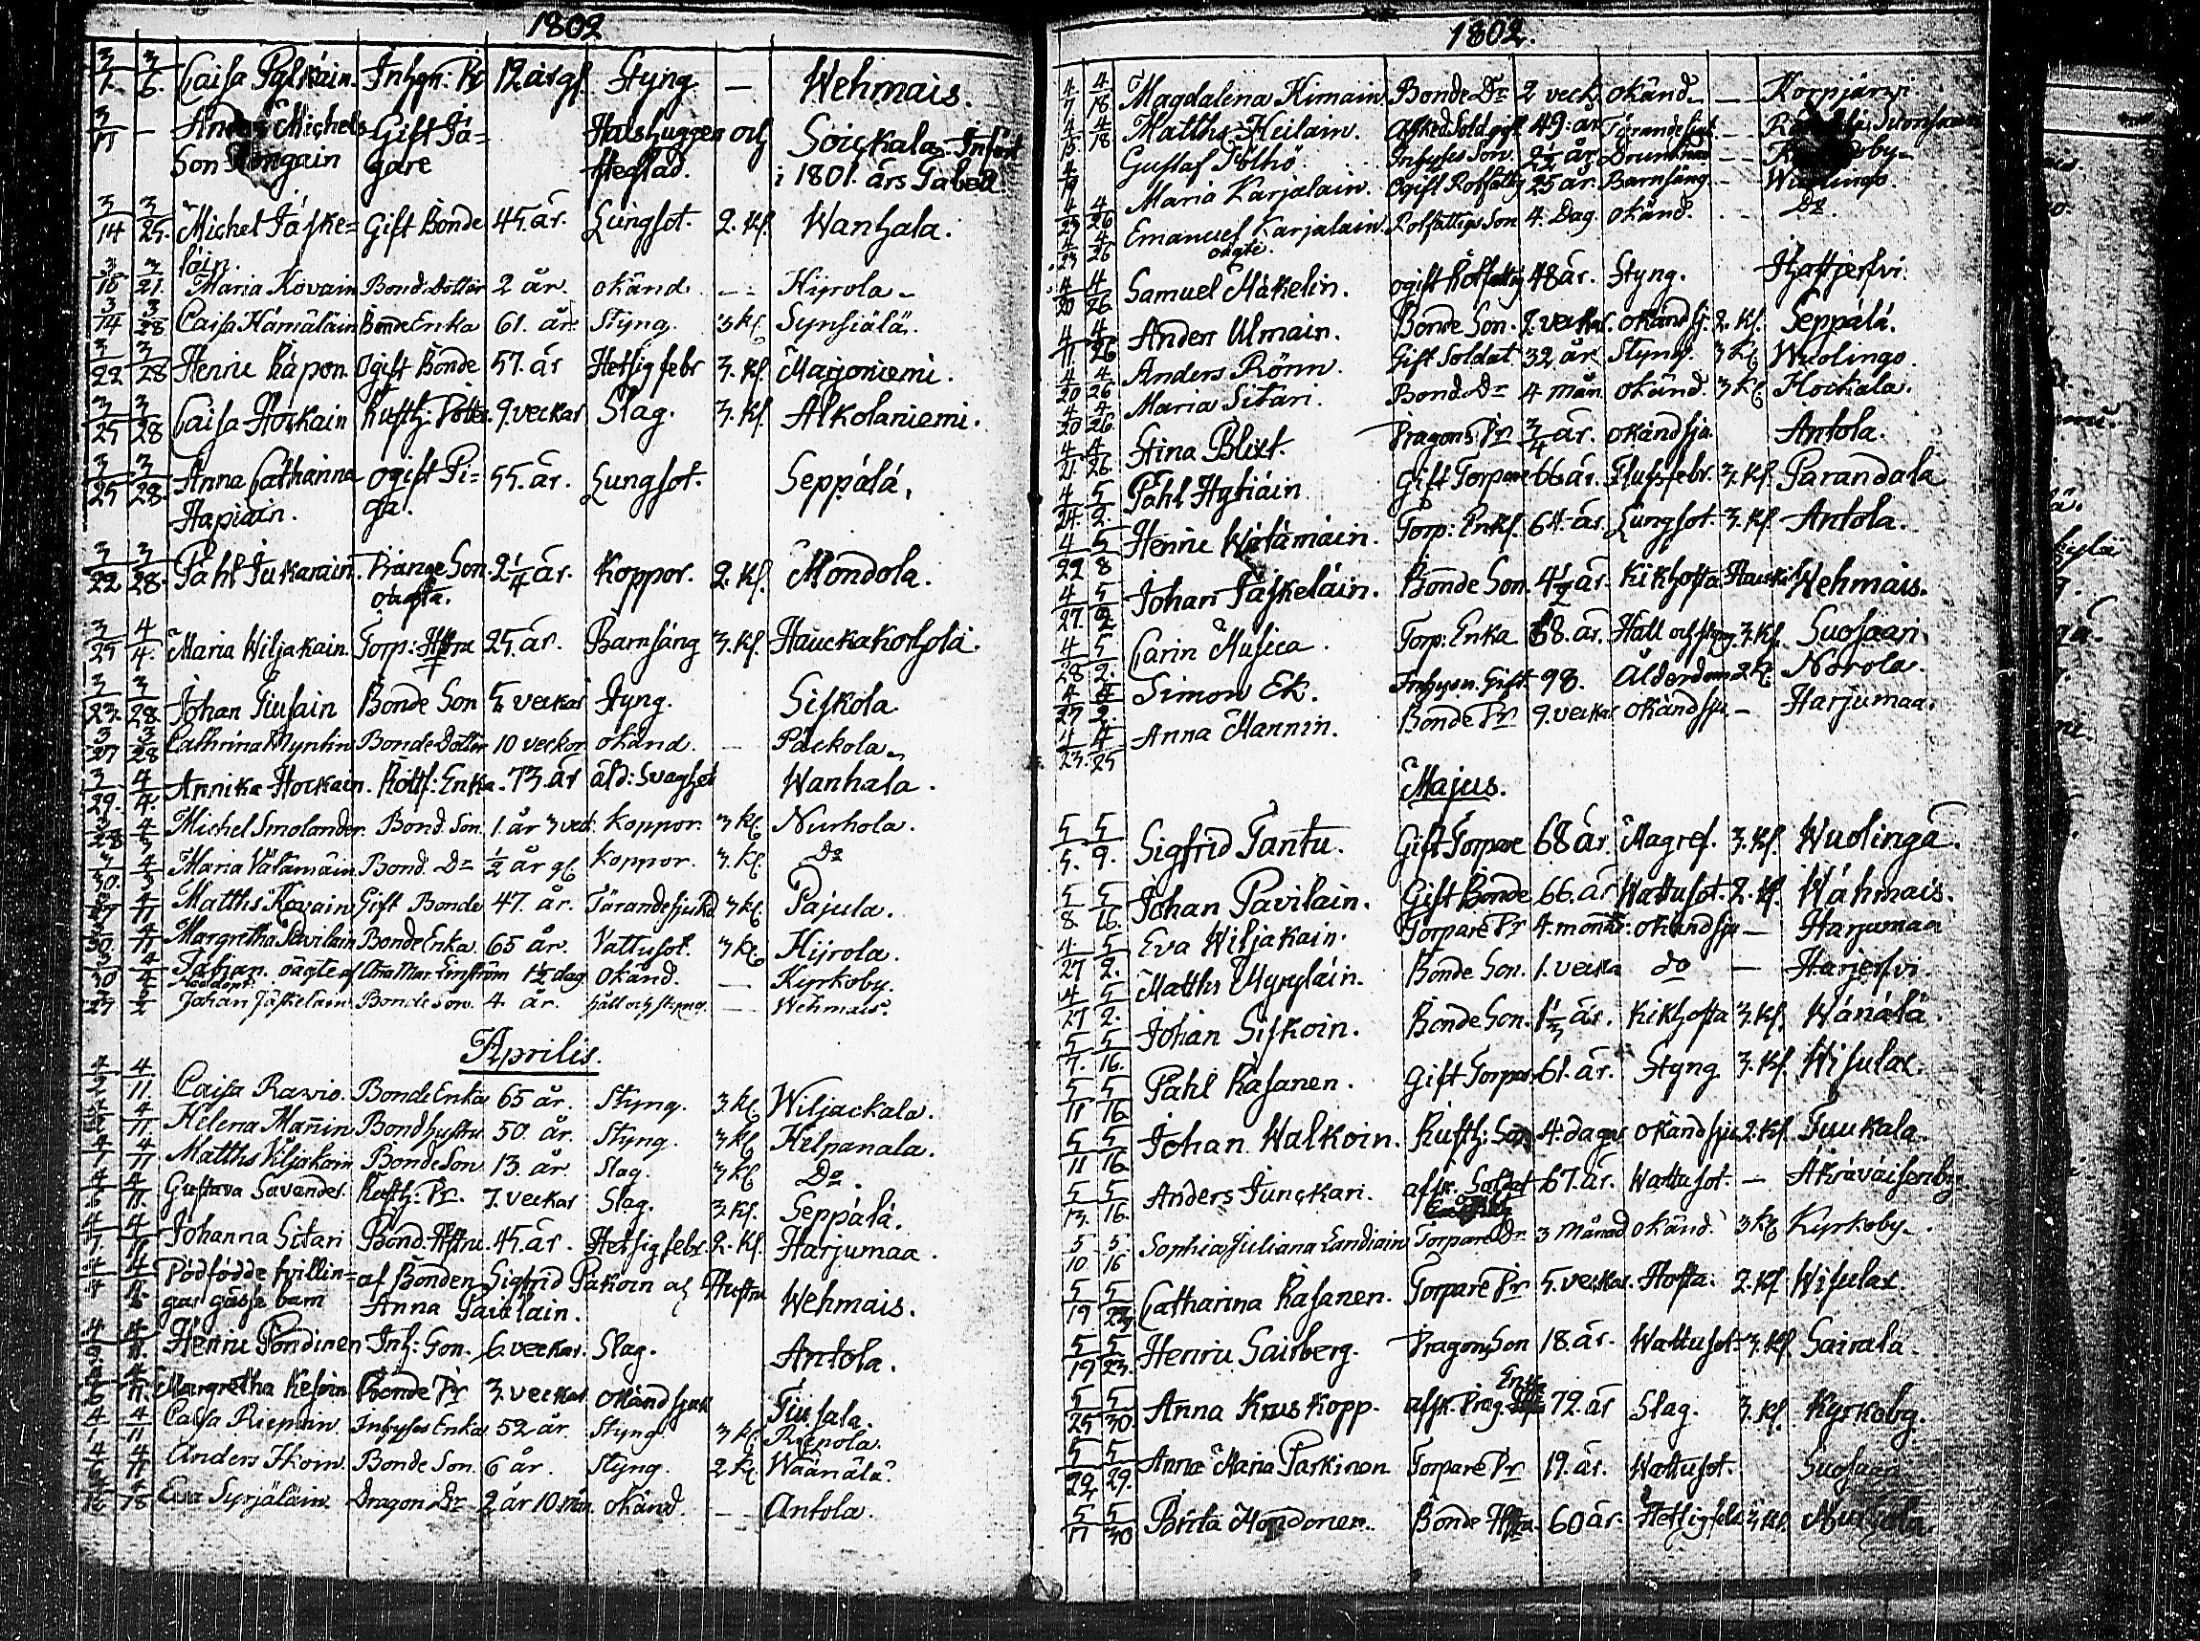 1802
3/1. 3/6. Caisa Pylkäin. Inhys: Dr 12 år gl. Styng — Wehmais.
3/11 — Anders Michels Gift Jä= Halshuggen och Soickala. Infört
Son Rongain gare Steglad. i 1801. års Tabell
3/14 3/25. Michel Jäske= Gift Bonde 45. år. Lungsot. 2. Kl. Wanhala.
läin.
3/18 3/21. Maria Kovain Bond. Dotter 2 år. okänd. — Hijrola.
3/14 3/28 Caisa Hämäläin Bonde Enka 61. år. Styng. 3 Kl. Synsiälä.
3/22 3/28 Henric Käpon. Ogift Bonde 57. år Hetsig febr 3. Kl. Marjoniemi.
3/25 3/28 Caisa Hockain Rusth: Dotter. 9. veckar Slag. 3. Kl. Alkolaniemi.
3/25 3/28. Anna Catharina ogift Pi= 55. år. Lungsot. Seppälä.
Hapiain. ga.
3/22 3/28. Påhl Jukarain. Dränge Son. 2 1/4 år. Koppor. 2. Kl. Mondola.
oägta.
3/29 4/4. Maria Wiljakain. Torp: Hstru 25. år. Barnsäng 3. Kl. Hauckakorhola.
3/23. 3/28. Johan Tiusain Bonde Son 5 veckar Styng. Siskola
3/27 3/28 Cathrina Myntin Bonde Dotter 10 veckor okänd. — Packola.
3/29. 4/4. Annika Hockain. Rottf: Enka. 73. år åld: Svaghet Wanhala.
3/28 4/4 Michel Smolander. Bond. Son. 1. år 3 veck. Koppor. 3 Kl. Nurhola.
3/30. 4/4 Maria Wätämäin Bond. Dr 1/2 år gl. Koppor. 3. Kl. Do
3/27 4/11 Matths Kovain Gift Bonde 47. år. Tärande sjukd. 3 Kl. Pajula.
3/30. 4/11 Margretha Pavilain Bonde Enka. 65 år. Vattusot. 3 Kl. Hijrola.
3/30 4/4 Fabian. oägte af Enström 1 1/2 dag okänd. — Kyrkoby.
Johan Jäskeläin Bonde Son. 4. år. håll och styng. — Wehmais.
Aprilis.
4/2 4/11. Caisa Ravio. Bonde Enka 65 år. Styng. 3. Kl. Wiljackala.
4/11. Helena Mañin Bond hustru 50. år. Styng. 3 Kl. Helpanala.
4/1 4/11 Matths Wiljakain Bonde Son 13. år. Slag. 3 Kl. Do.
4/5 4/11. Gustava Savander. Rusth: Dr. 7. veckar Slag. 3. Kl. Seppälä.
Johanna Sitari Bond. Hstru. 45. år. Hetsig febr. 2. Kl. Harjumaa.
Dödfödde tvillin= af Bonden Sigfrid Pakoin och Hustru
gar gåsse barn Anna Pavilain. Wehmais.
4/9 4/11. Henric Pondinen Inh: Son. 6. veckar. Slag. Antola.
4/6 4/11. Margretha Kesoin Bonde Dr 3. veckar okänd sjuk Tiusala.
4/1 4/11 Caisa Riepoin. Inhyses Enka 52 år. Styng. 3 Kl. Repola.
4/6 4/11 Anders Ikoin. Bonde Son. 6 år. Styng. 2 Kl. Wäänälä.
4/12 4/18 Eva Syrjäläin. Dragon Dr 2 år 10. mån. okänd. — Antola.
1802.
4/7 4/18 Magdalena Kimain. Bonde Dr 2 veck. okänd. — Korpjärwi.
4/15. 4/18 Matths Heilain. Afsked Sold. gift 49. år. Tärande sjukd. —
4/19 Gustaf Pöllö Inhyses Son. 2 1/2 år. Drunknad —
4/23 4/26 Maria Karjalain. Ogift Rotfattig 25 år. Barnsäng. — Wuolingo.
4/23 4/26 Emanuel Karjalain. Rotfattigs Son 4. Dag. okänd. — Do.
oägte.
4/20 4/26 Samuel Mäkelin. ogift Rotfattig 48 år. Styng. Ihattjerfvi.
4/11. 4/26 Anders Ulmain. Bonde Son. 2. veckar. okänd sj. 2. Kl. Seppälä.
4/20 4/26 Anders Rönn. Gift Soldat 32 år. Styng. 3 Kl. Wuolingo.
4/20 4/26. Maria Sitari. Bond. Dr 4 mån. okänd. 3 Kl. Hockala.
4/21. 4/26 Stina Blixt. Dragons Dr 3/4 år. okänd sju. Antola.
4/24. 5/2. Påhl Hytiäin Gift Torpare 66 år. Flussfebr. 3. Kl. Parandala
4/29 5/8 Henric Wätämäin. Torp: Enkl. 64. år. Lungsot. 3. Kl. Antola.
4/27. 5/2 Johan Jäskeläin. Bonde Son. 4 1/2 år. Kikhosta Wehmais.
4/28 5/2. Carin Musica. Torp: Enka 68. år. Håll och styng 3. Kl. Suosaari.
4/27 5/2. Simon Ek. Inhyses. Gift 98. Ålderdom 2 Kl. Norola.
4/23. 4/25 Anna Mannin. Bonde Dr 9. veckar okänd sju — Harjumaa.
Majus.
5/4. 5/9. Sigfrid Tantu. Gift Torpare 68 år. Magref. 3. Kl. Wuolinga.
5/8 5/16. Johan Pavilain. Gift Bonde 66. år Wattusot. 2. Kl. Wähmais.
4/27 5/2. Eva Wiljakain. Torpare Dr 4. månar. okänd sju — Harjumaa
4/27 5/2. Matths Myryläin. Bonde Son. 1. vecka do — Harjerfvi.
5/7. 5/16. Johan Siskoin. Bonde Son. 1 1/3 år. Kikhosta 3. Kl. Wänälä.
5/11 5/16 Påhl Räsanen. Gift Torpar. 61. år. Styng. 3. Kl. Wisulax.
5/11 5/16 Johan Walkoin. Rusth: Son 4. dagar okänd sju 2. Kl. Tuukala.
5/13. 5/16. Anders Junckari. afsk. Soldat 67. år. Wattusot. — Akraväisenby
5/10 5/16 Sophia Juliana Landiain Torpare Dr. 3 Månad okänd. 3 Kl. Kyrkoby.
5/19 5/23 Catharina Räsanen. Torpare Dr 5. veckar. Hosta. 2. Kl. Wisulax.
5/19 5/23. Henric Sairberg. Dragons Son 18. år. Wattusot. 3. Kl. Sairala.
5/25 5/30 Anna Kruskopp. afsk. Drag. Enka 72. år Slag. 3. Kl. Kyrkoby.
5/22 5/29. Anna Maria Parkinen Torpare Dr 19. år. Wattusot. Suosaari
5/17 5/30 Brita Mondonen. Bonde Hstru. 60 år. Hetsig feb. 3. Kl.